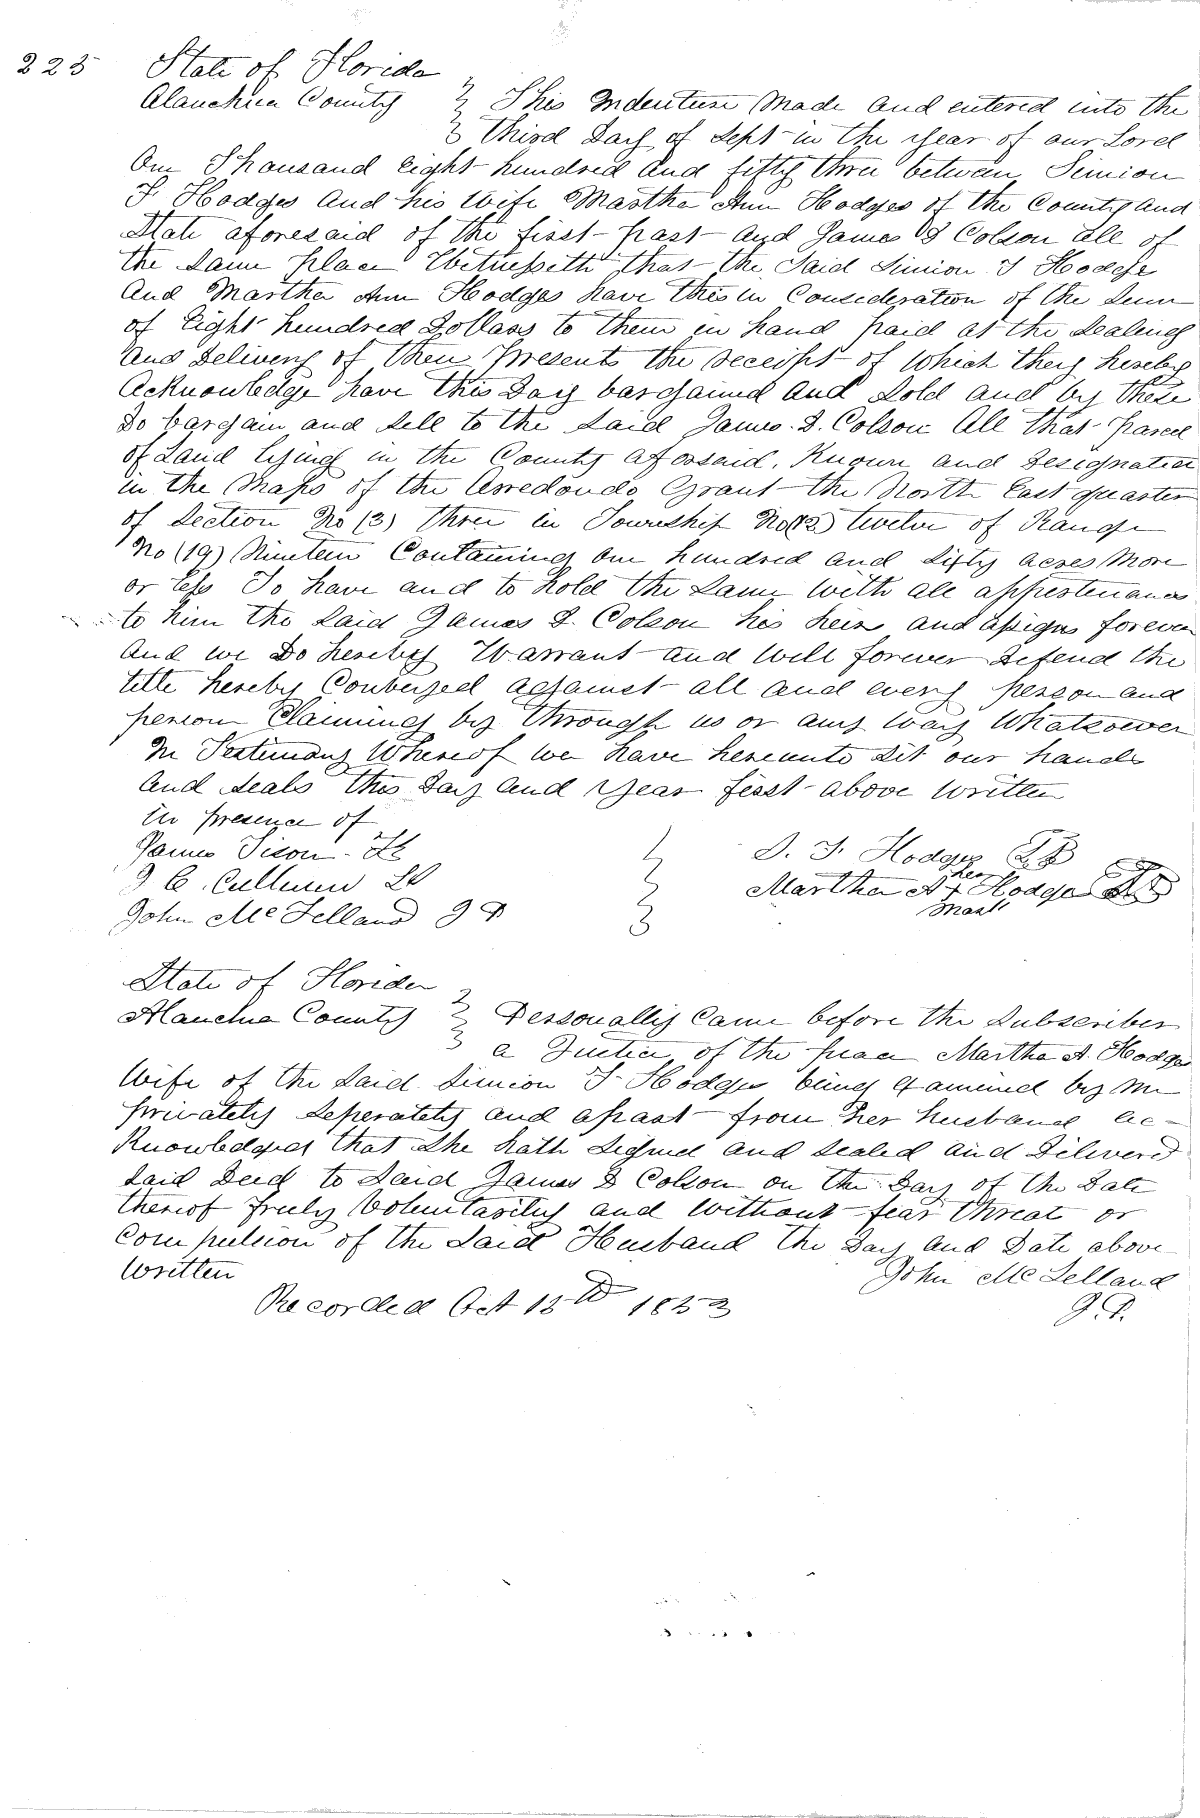 223 State of Florida
Alauchua County } This Indenture Made and entered into the
} third Day of Sept in the year of our Lord
One Thousand Eight hundred and fifty three between Simion
T. Hodges and his wife Martha Ann Hodges of the County and
State aforesaid of the first part and James D Colson all of
the same place Witnesseth that the said Simion T Hodges
and Martha Ann Hodges have this in Consideration of the Sum
of Eight hundred Dollars to them in hand paid at the sealing
and Delivery of these presents the receipt of Which they hereby
Acknowledge have this Day bargained and Sold and by these
Do bargain and sell to the said James D. Colson All that parcel
of Land lying in the County aforsaid, Known and Designated
in the Maps of the Arredondo Grant the North East quarter
of Section No (3) three in Township No (12) twelve of Range
No (19) Nineteen Containing One hundred and Sixty acres More
or less To have and to hold the same With all appertenances
to him the said James D. Colson his heirs and assigns forever
And we Do hereby Warrant and Will forever Defend the
title hereby Conveyed against all and every person and
persons Claiming by through us or any way Whatsoever
In Testimony Whereof we have hereunto set our hands
and seals this Day and year first above Written
In presence of
James Tison
J C.
John McLelland J P
} S. T. Hodges LS
her
Martha A + Hodges LS
Mark
State of Florida
Alauchua County } Personally Came before the Subscriber
a Justice of the peace Martha A. Hodges
Wife of the said Simion T Hodges being Examined by Me
privately Seperately and apart from her husband ac-
Knowledges that she hath signed and sealed and Delivered
said Deed to said James D Colson on the Day of the Date
thereof freely Voluntarily and Without fear threat or
Compulsion of the said Husband the Day and Date above
Written John McLelland
Recorded Oct 13th 1853 J. P.